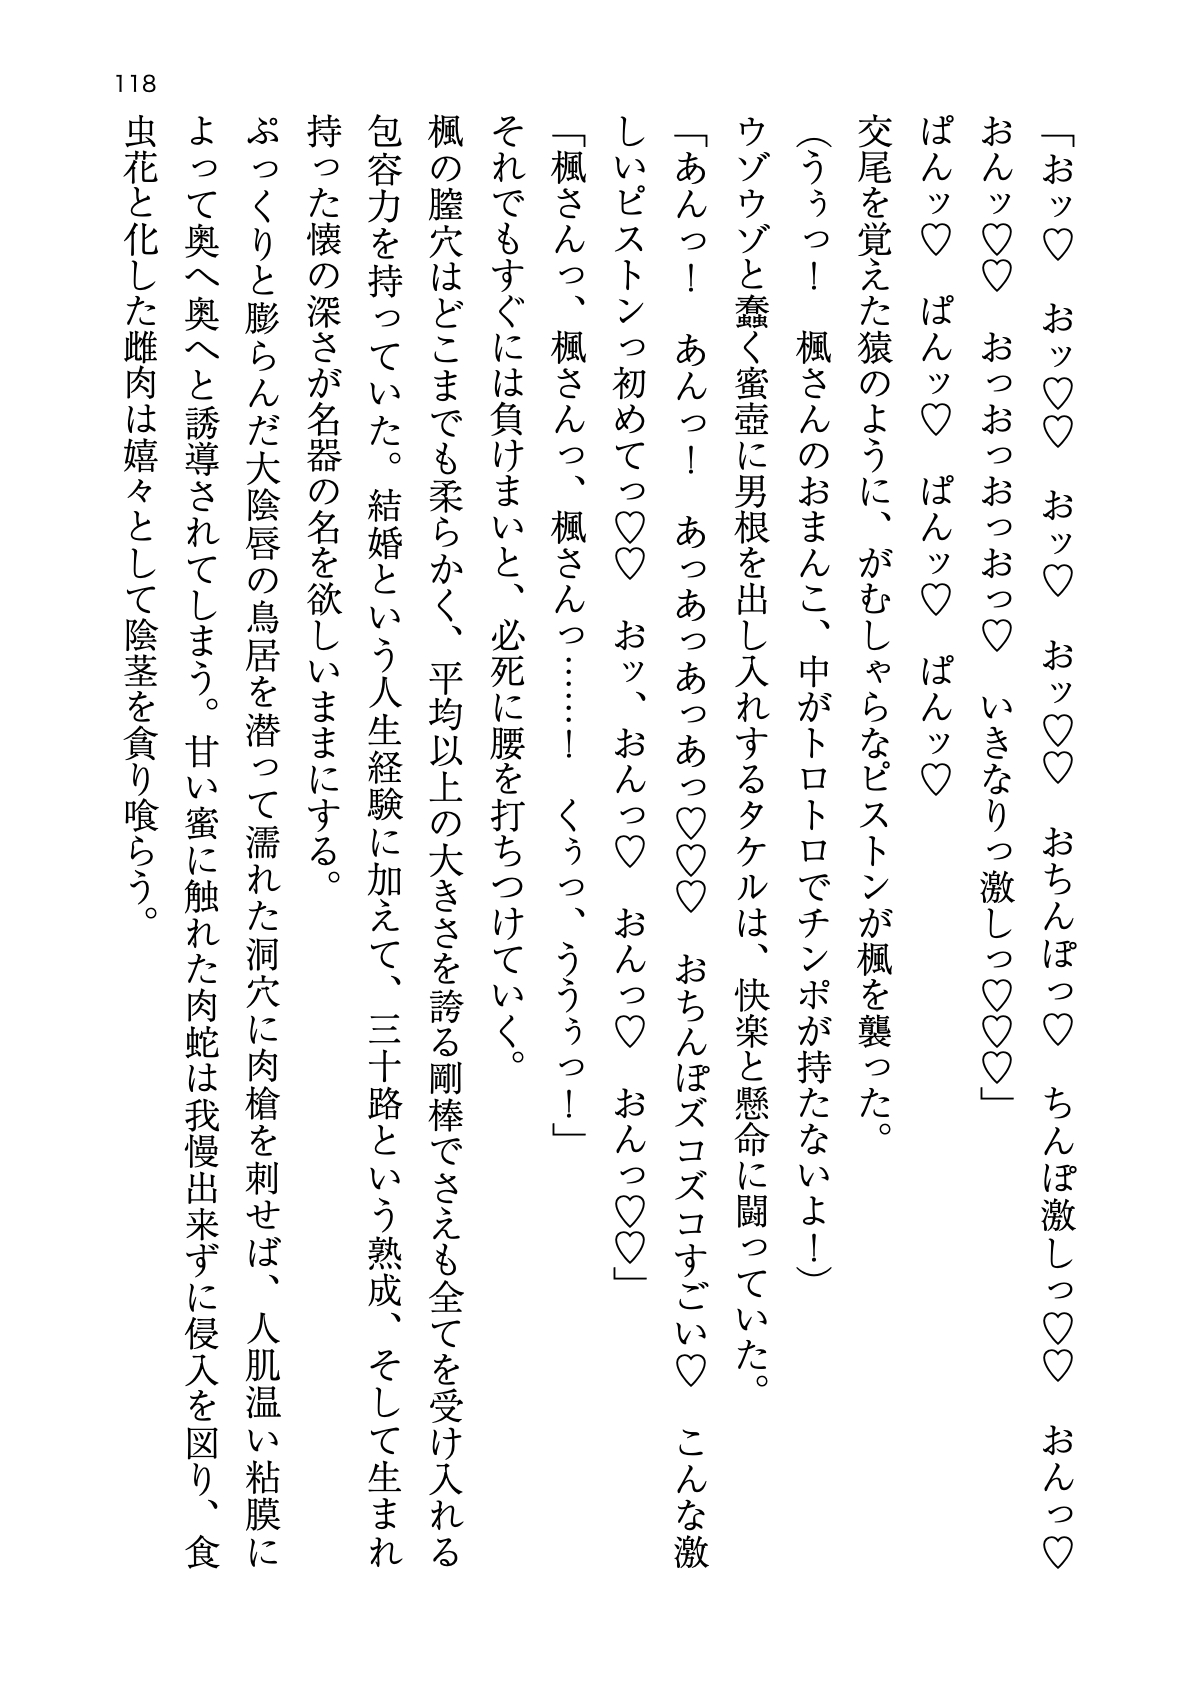 118
「おッ♡　おッ♡♡　おッ♡　おッ♡♡　おちんぽっ♡　ちんぽ激しっ♡♡　おんっ♡
おんッ♡♡　おっおっおっおっ♡　いきなりっ激しっ♡♡♡」
ぱんッ♡　ぱんッ♡　ぱんッ♡　ぱんッ♡
交尾を覚えた猿のように、がむしゃらなピストンが楓を襲った。
（うぅっ！　楓さんのおまんこ、中がトロトロでチンポが持たないよ！）
ウゾウゾと蠢く蜜壺に男根を出し入れするタケルは、快楽と懸命に闘っていた。
「あんっ！　あんっ！　あっあっあっあっ♡♡♡　おちんぽズコズコすごい♡　こんな激
しいピストンっ初めてっ♡♡　おッ、おんっ♡　おんっ♡　おんっ♡♡」
「楓さんっ、楓さんっ、楓さんっ……！　くぅっ、ううぅっ！」
それでもすぐには負けまいと、必死に腰を打ちつけていく。
楓の膣穴はどこまでも柔らかく、平均以上の大きさを誇る剛棒でさえも全てを受け入れる
包容力を持っていた。結婚という人生経験に加えて、三十路という熟成、そして生まれ
持った懐の深さが名器の名を欲しいままにする。
ぷっくりと膨らんだ大陰唇の鳥居を潜って濡れた洞穴に肉槍を刺せば、人肌温い粘膜に
よって奥へ奥へと誘導されてしまう。甘い蜜に触れた肉蛇は我慢出来ずに侵入を図り、食
虫花と化した雌肉は嬉々として陰茎を貪り喰らう。